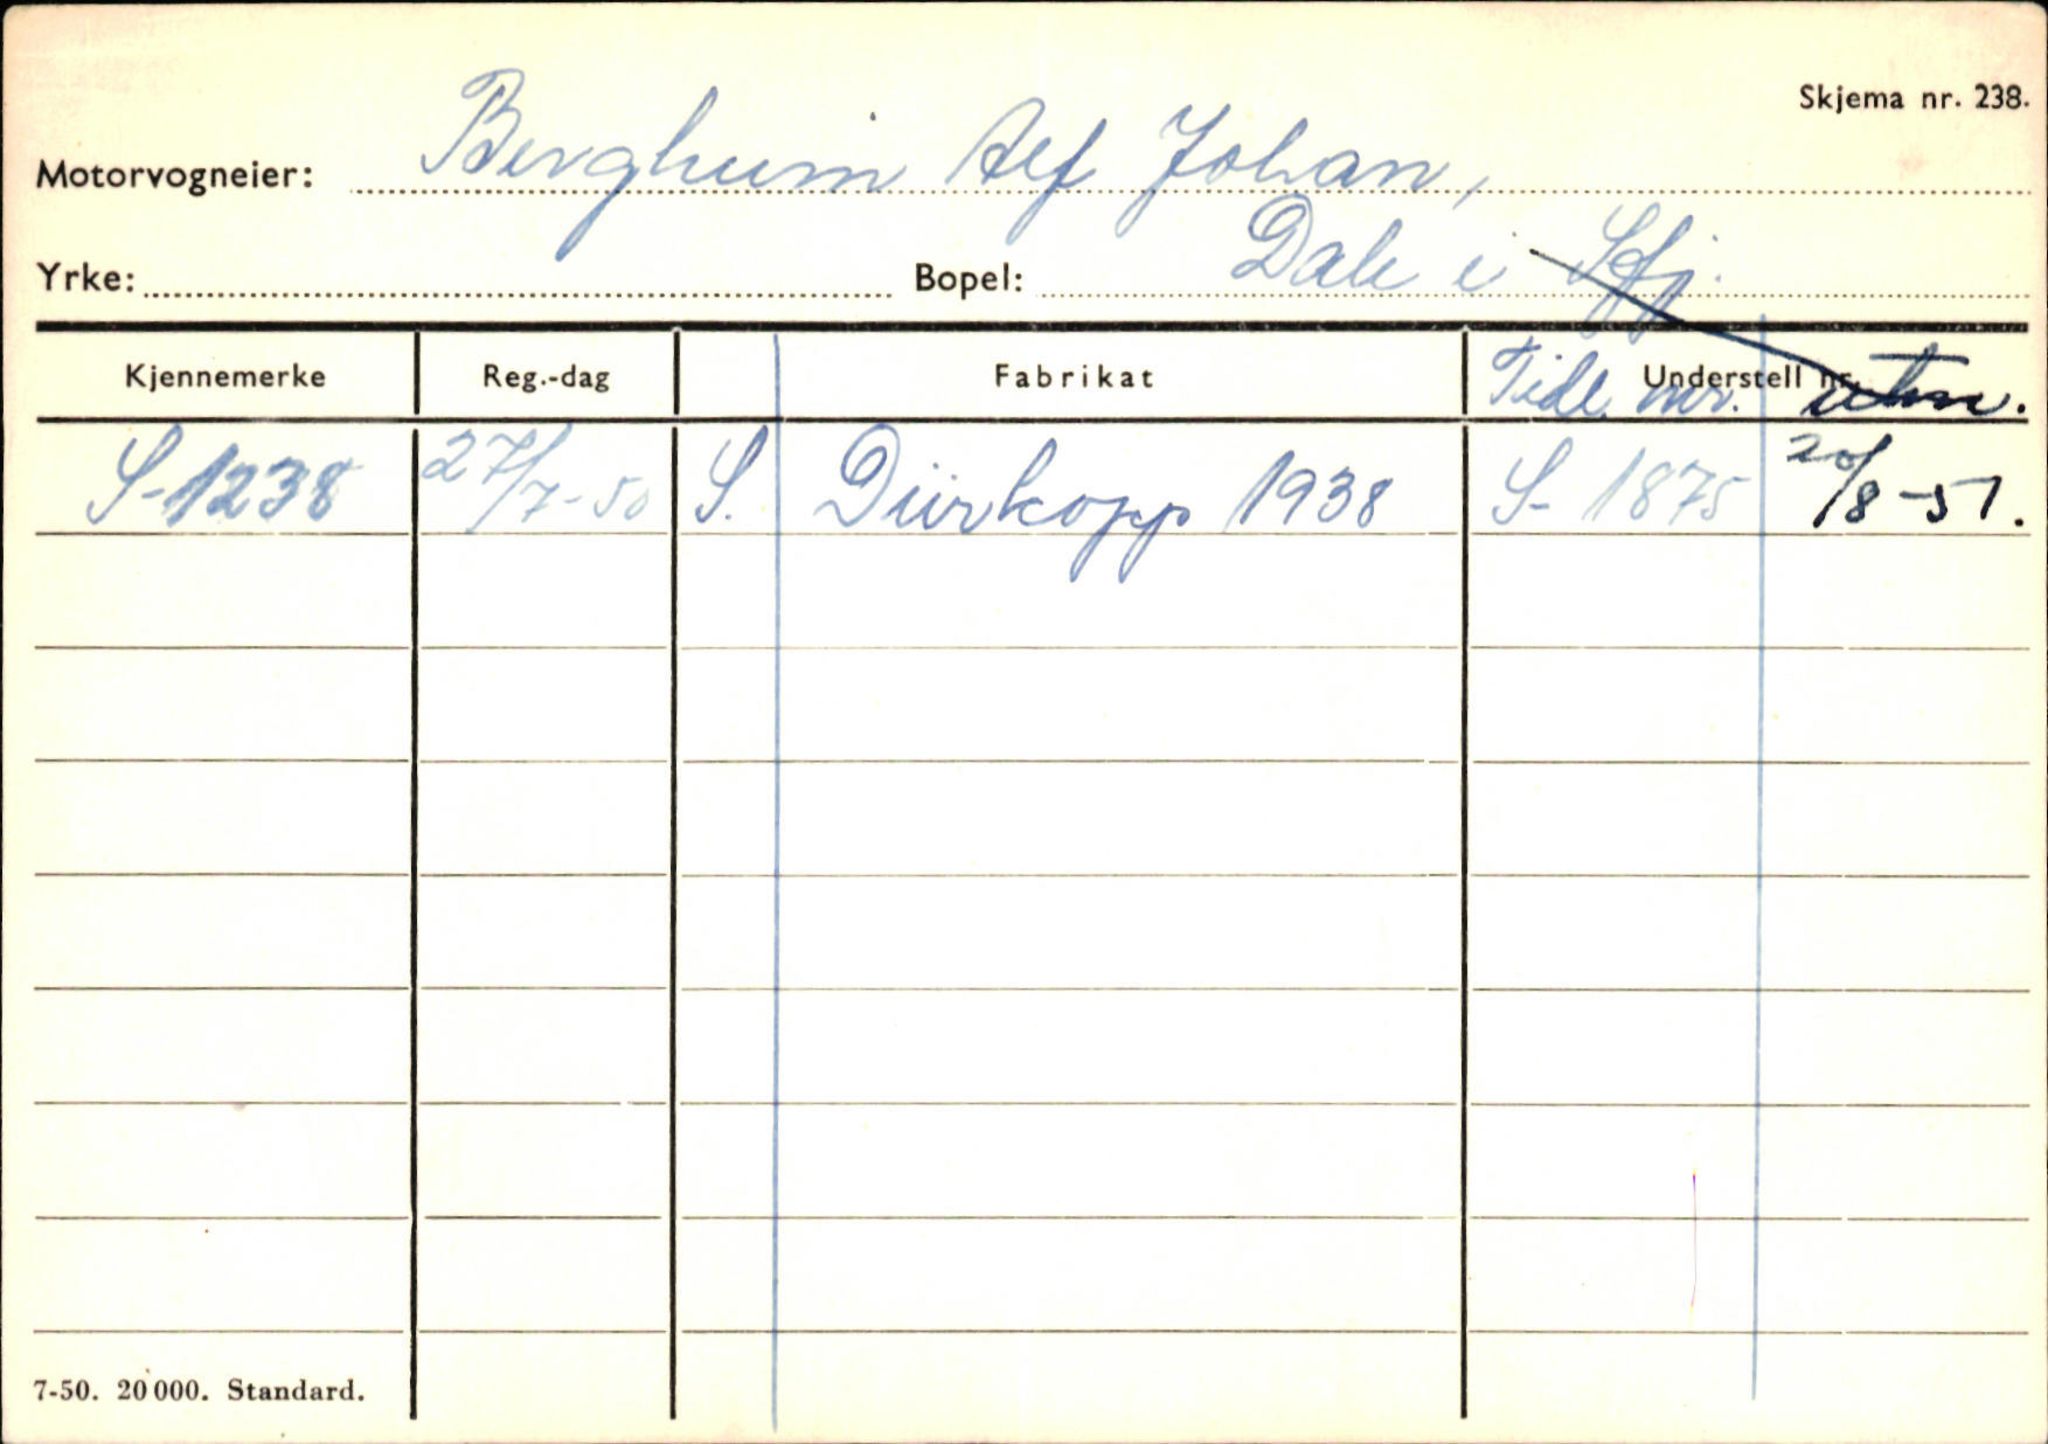 Skjema nr. 238.
Motorvogneier: Bergheim Alf Johan,
Yrke: Bopel: Dale i Sfj.
Kjennemerke Reg.-dag Fabrikat Tidl. nr. Understell nr. utm.
S-1238 27/7-50 S. Dürkopp 1938 S-1875 20/8-51.
7-50. 20000. Standard.